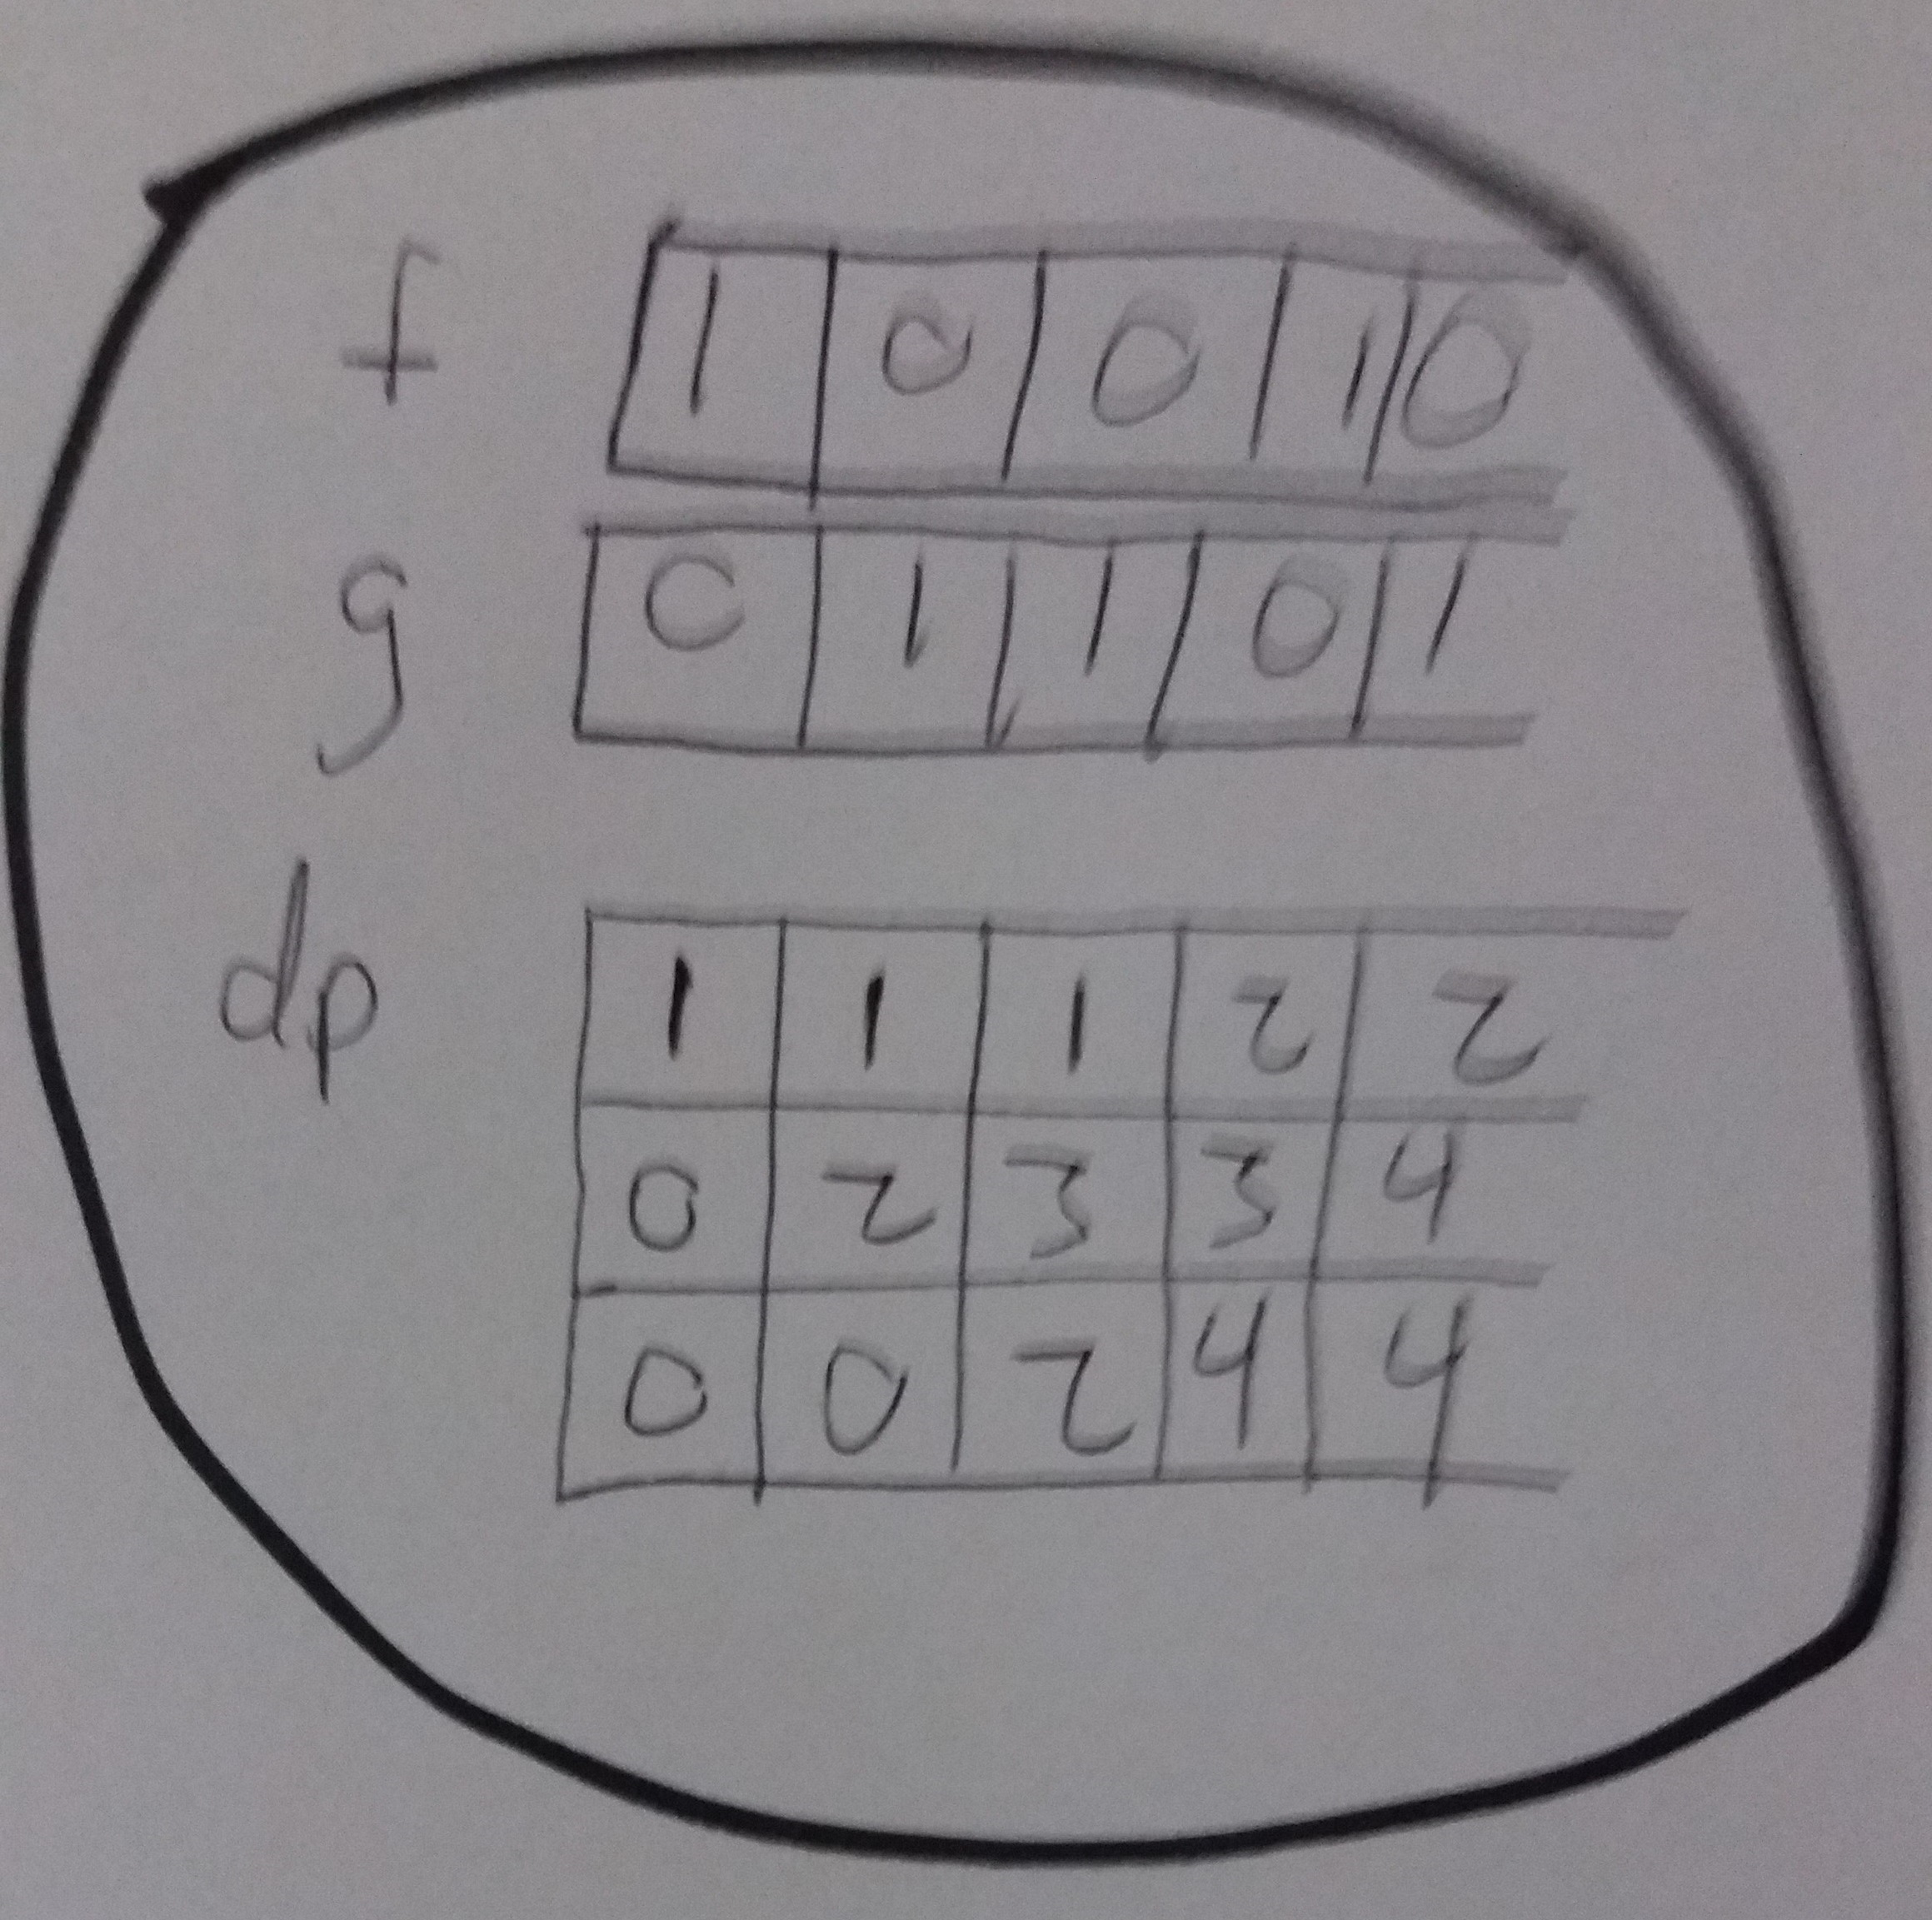 f 1 0 0 1 0
g 0 1 1 0 1
dp 1 1 1 2 2
0 2 3 3 4
0 0 2 4 4